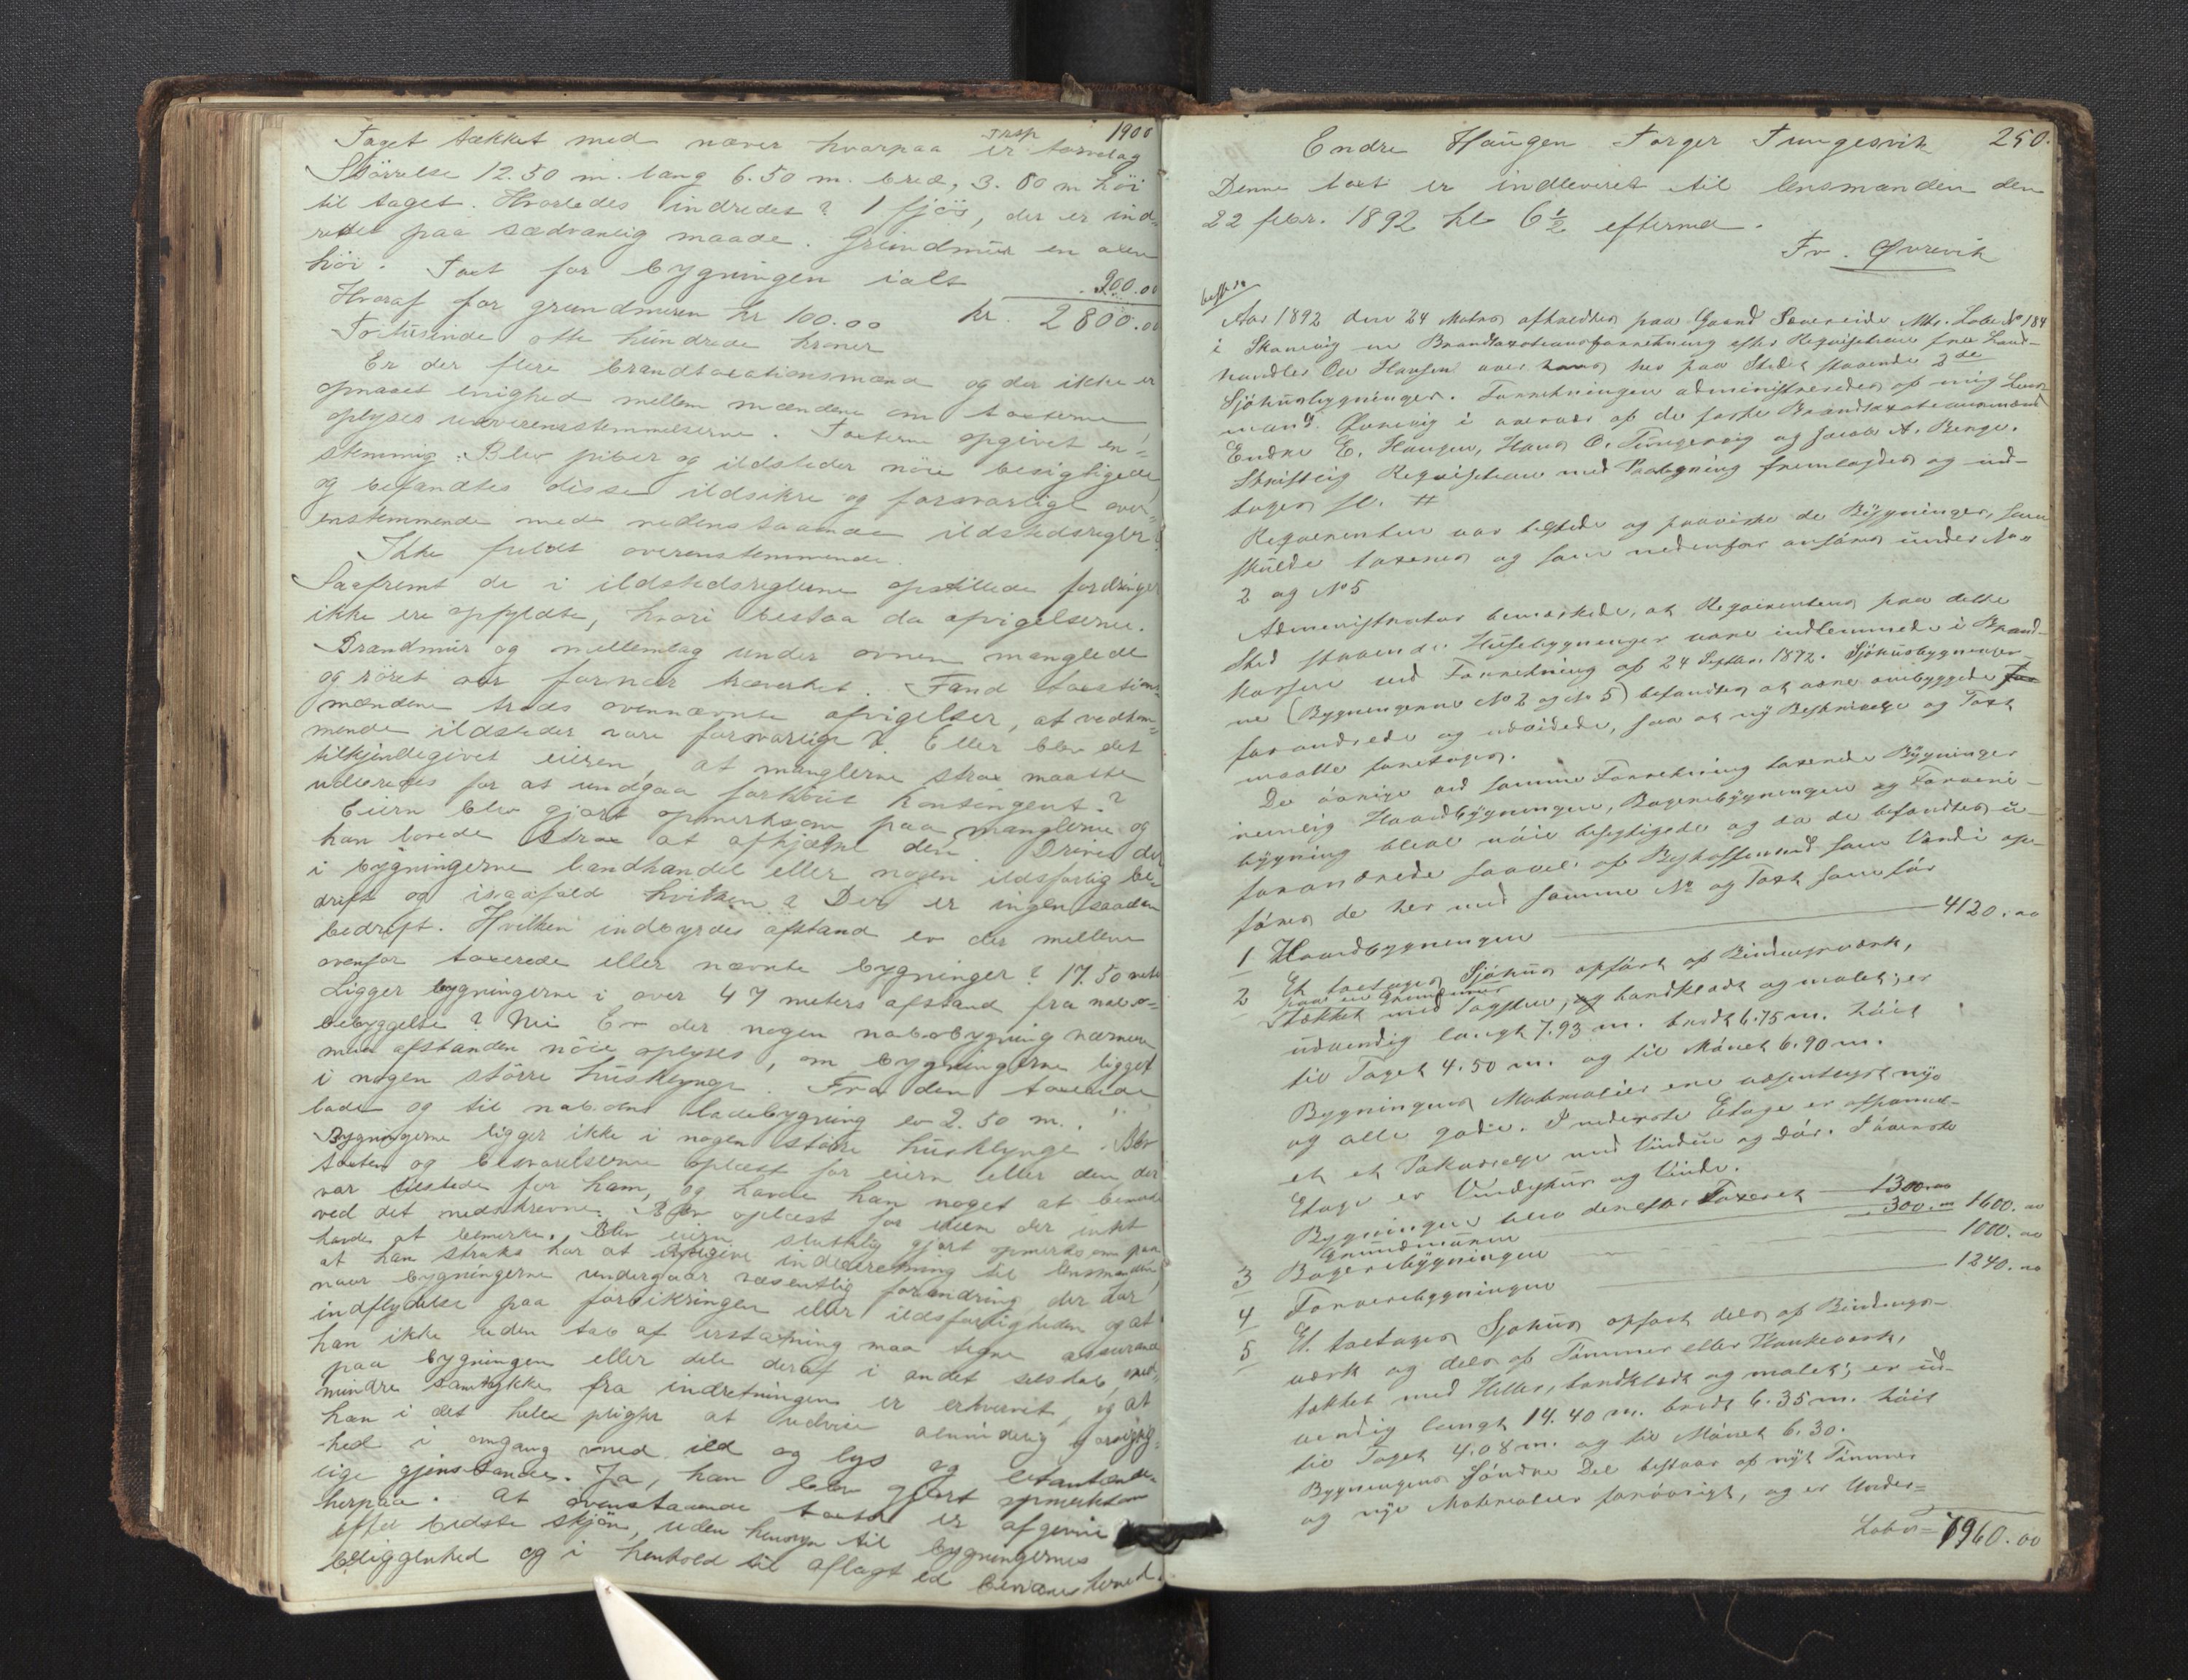 Trsp 1900
Taget tækket med næver hvorpaa er torvtag
Større­lse 12.50 m. lang 6.50 m. bred, 3.80 m høi
til taget. Hvorledes indredet? 1 fjøs, der er ind-
rettet paa sædvanlig maade. Grundmur en alen
høi. Taxt for bygningen ialt 900.00
Hvoraf for grundmuren kr 100.00 kr. 2800.00
Totusinde otte hundrede kroner
Er der flere brandtaxationsmænd og der ikke er
opnaaet enighed mellem mændene om taxterne
oplyses uoverensstemmelserne. Taxterne opgivet en-
stemmig. Blev piber og ildsteder nöie besigtigede
og befandtes disse ildsikre og forsvarlige over-
enstemmende med nedenstaaende ildstedsregler?
Ikke fuldt overenstemmende.
Saafremt de i ildstedsreglerne opstillede fordringer
ikke ere opfyldte, hvori bestaa da afvigelserne.
Brandmur og mellemlag under ovnen manglede
og röret var for nær træverket. Fand taxtions-
mændene trods ovennævnte afvigelser, at vedkom-
mende ildsteder vare forsvarlige? Eller blev det
tilkjendegivet eieren, at manglerne strax maatte
udbedres for at undgaa forhöiet kontingent?
Eieren blev gjort opmerksom paa manglerne og
han lovede strax at afhjælpe den. Drives der
i bygningerne landhandel eller nogen ildsfarlig be-
drift og isaafald hvilken? Der er ingen saadan
bedrift. Hvilken indbyrdes afstand er der mellem
ovenfor taxerede eller nævnte bygninger? 17.50 meter
Ligger bygningerne i over 47 meters afstand fra nabo-
bebyggelse? Nei Er der nogen nabobygning nærmere
maa afstanden nöie oplyses, om bygningerne ligget
i nogen större husklynge. Fra den taxerede
lade og til naboens ladebygning er 2.50 m.
Bygningerne ligger ikke i nogen större husklynge. Blev
taxten og besvarelserne oplæst for eieren eller den der
var tilstede for ham, og havde han noget at bemerke
ved det nedskrevne. Blev oplæst for eieren der intet
havde at bemerke. Blev eieren sluttelig gjort opmerksom paa
at han straks har at indberetning til lensmanden
naar bygningerne undergaar væsentlig forandring der har
indflydelse paa forsikringen eller ildsfarligheden og at
han ikke uden tab af erstatning maa tegne assurance
paa bygningen eller dele deraf i andet selskab, med-
mindre samtykke fra indretningen er erhvervet, og at
han i det hele pligter at udvise almindelig forsigtig-
hed i omgang med ild og lys og letantænde-
lige gjenstande. Ja, han blev gjort opmerksom
herpaa. At ovenstaaende taxter er afgivne
efter bedste skjön, uden hensyn til bygningernes
beliggenhed og i henhold til aflagt ed bevidnes herved.
Endre Haugen Torger Tungesvik 250.
Denne taxt er indleveret til lensmanden den
22 febr. 1892 kl 6 1/2 efterm.
Fr. Øvrevik
Aar 1892 den 24 Marts afholdtes paa Gaard Sævereide Mtr. Løbe No 184
i Skonevig en Brandtaxationsforretning efter Requisition fra Land-
handler Ole Hansen over hans her paa Stedet staaende 2de
Sjöhusbygninger. Forretningen administreredes af mig Lens-
mand Øvrevig i overvær af de faste Brandtaxationsmænd
Endre E. Haugen, Hans O. Tungesvig og Jacob A. Berge.
Skriftlig Requisition med Paategning fremlagdes og ind-
tages sl. #
Requirenten var tilstede og paaviste de Bygninger, som
skulde taxeres og som nedenfor anføres under No
2 og No 5
Administrator bemærkede, at Requirentens paa dette
Sted staaende Husebygninger vare indlemmede i Brand-
kassen ved Forretning af 24 Septbr. 1872. Sjöhusbygninger-
ne (Bygningerne No 2 og No 5) befandtes at være ombyggede for
forandrede og udvidede, saa at ny Beskrivelse og Taxt
maatte foretages.
De övrige ved samme Forretning taxerede Bygninger
nemlig Hovedbygningen, Bageribygningen og Farveri-
bygning bleve nöie besigtigede og da de befandtes u-
forandrede saavel af Beskaffenhed som Værdi op-
föres de her med samme No og Taxt som för
1 Hovedbygningen 4120.00
2 Et toetages Sjöhus opfört af Bindingsværk,
paa en Grundmur
Tækket med Tagsten, og bordklædt og malet; er
udvendig langt 7.93 m. bredt 6.75 m. höit
til Taget 4.50 m. og til Mönet 6.90 m.
Bygningens Materialier ere væsentligst nye
og alle gode. I nederste Etage er afpanel-
et et Pakværelse med Vindu og Dör. I överste
Etage er Vindushus og Vinde.
Bygningen blev derefter Taxeret 1300.00
Grundmuren 300.00 1600.00
3 Bageribygningen 1000.00
4 Farveribygningen 1240.00
5 Et toetages Sjöhus opfört dels af Bindings-
værk og dels af Tömmer eller
takket med Heller, bordklædt og malet; er ud-
vendig langt 14.40 m. bredt 6.35 m. höit
til Taget 4.08 m. og til Mönet 6.30.
Bygningens söndre Del bestaar af nyt Tömmer
og nye Materialier forövrigt, og er Under=
Lateris 7960.00